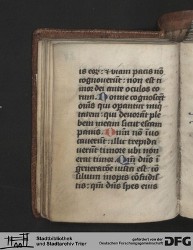 is eoꝝ: ⁊ viam pacis nō
cognouerūt: non est ti
mor dei ante oculos eo
rum. Nonne cognoscēt
om̄s qui operantur ini
quitatem: qui deuorant ple
bem meam sicut escam
panis. Deum nō īuo
cauerūt: illic trepida
uerūt timore vbi non
erat timor. Qm̄ dn̄s ī
generatōe iusta est: cō
silium inopis confudis
tis: qm̄ dn̄s spes eius
Stadtbibliothek
und Stadtarchiv Trier
gefördert von der
Deutschen Forschungsgemeinschaft
DFG